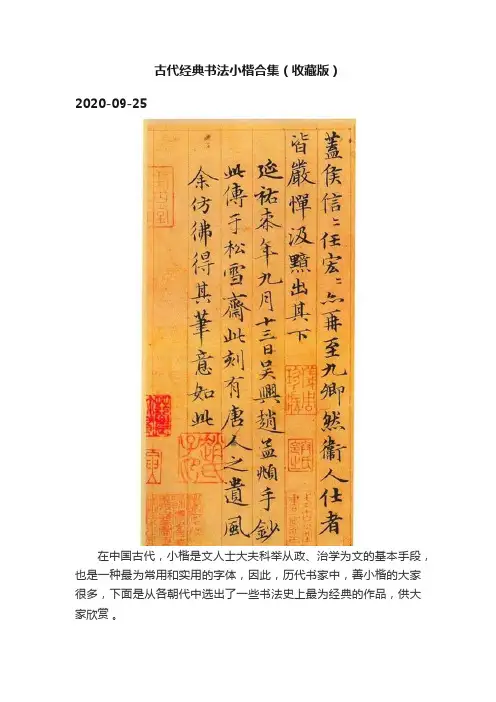 古代经典书法小楷合集（收藏版）
2020-09-25
蓋侯信〻任宏〻亦再至九卿然衞人仕者
皆嚴憚汲黯出其下
延祐柒年九月十三日吴興趙孟頫手鈔
此傳于松雪齋此刻有唐人之遺風
余仿彿得其筆意如此
在中国古代，小楷是文人士大夫科举从政、治学为文的基本手段，
也是一种最为常用和实用的字体，因此，历代书家中，善小楷的大家
很多，下面是从各朝代中选出了一些书法史上最为经典的作品，供大
家欣赏。